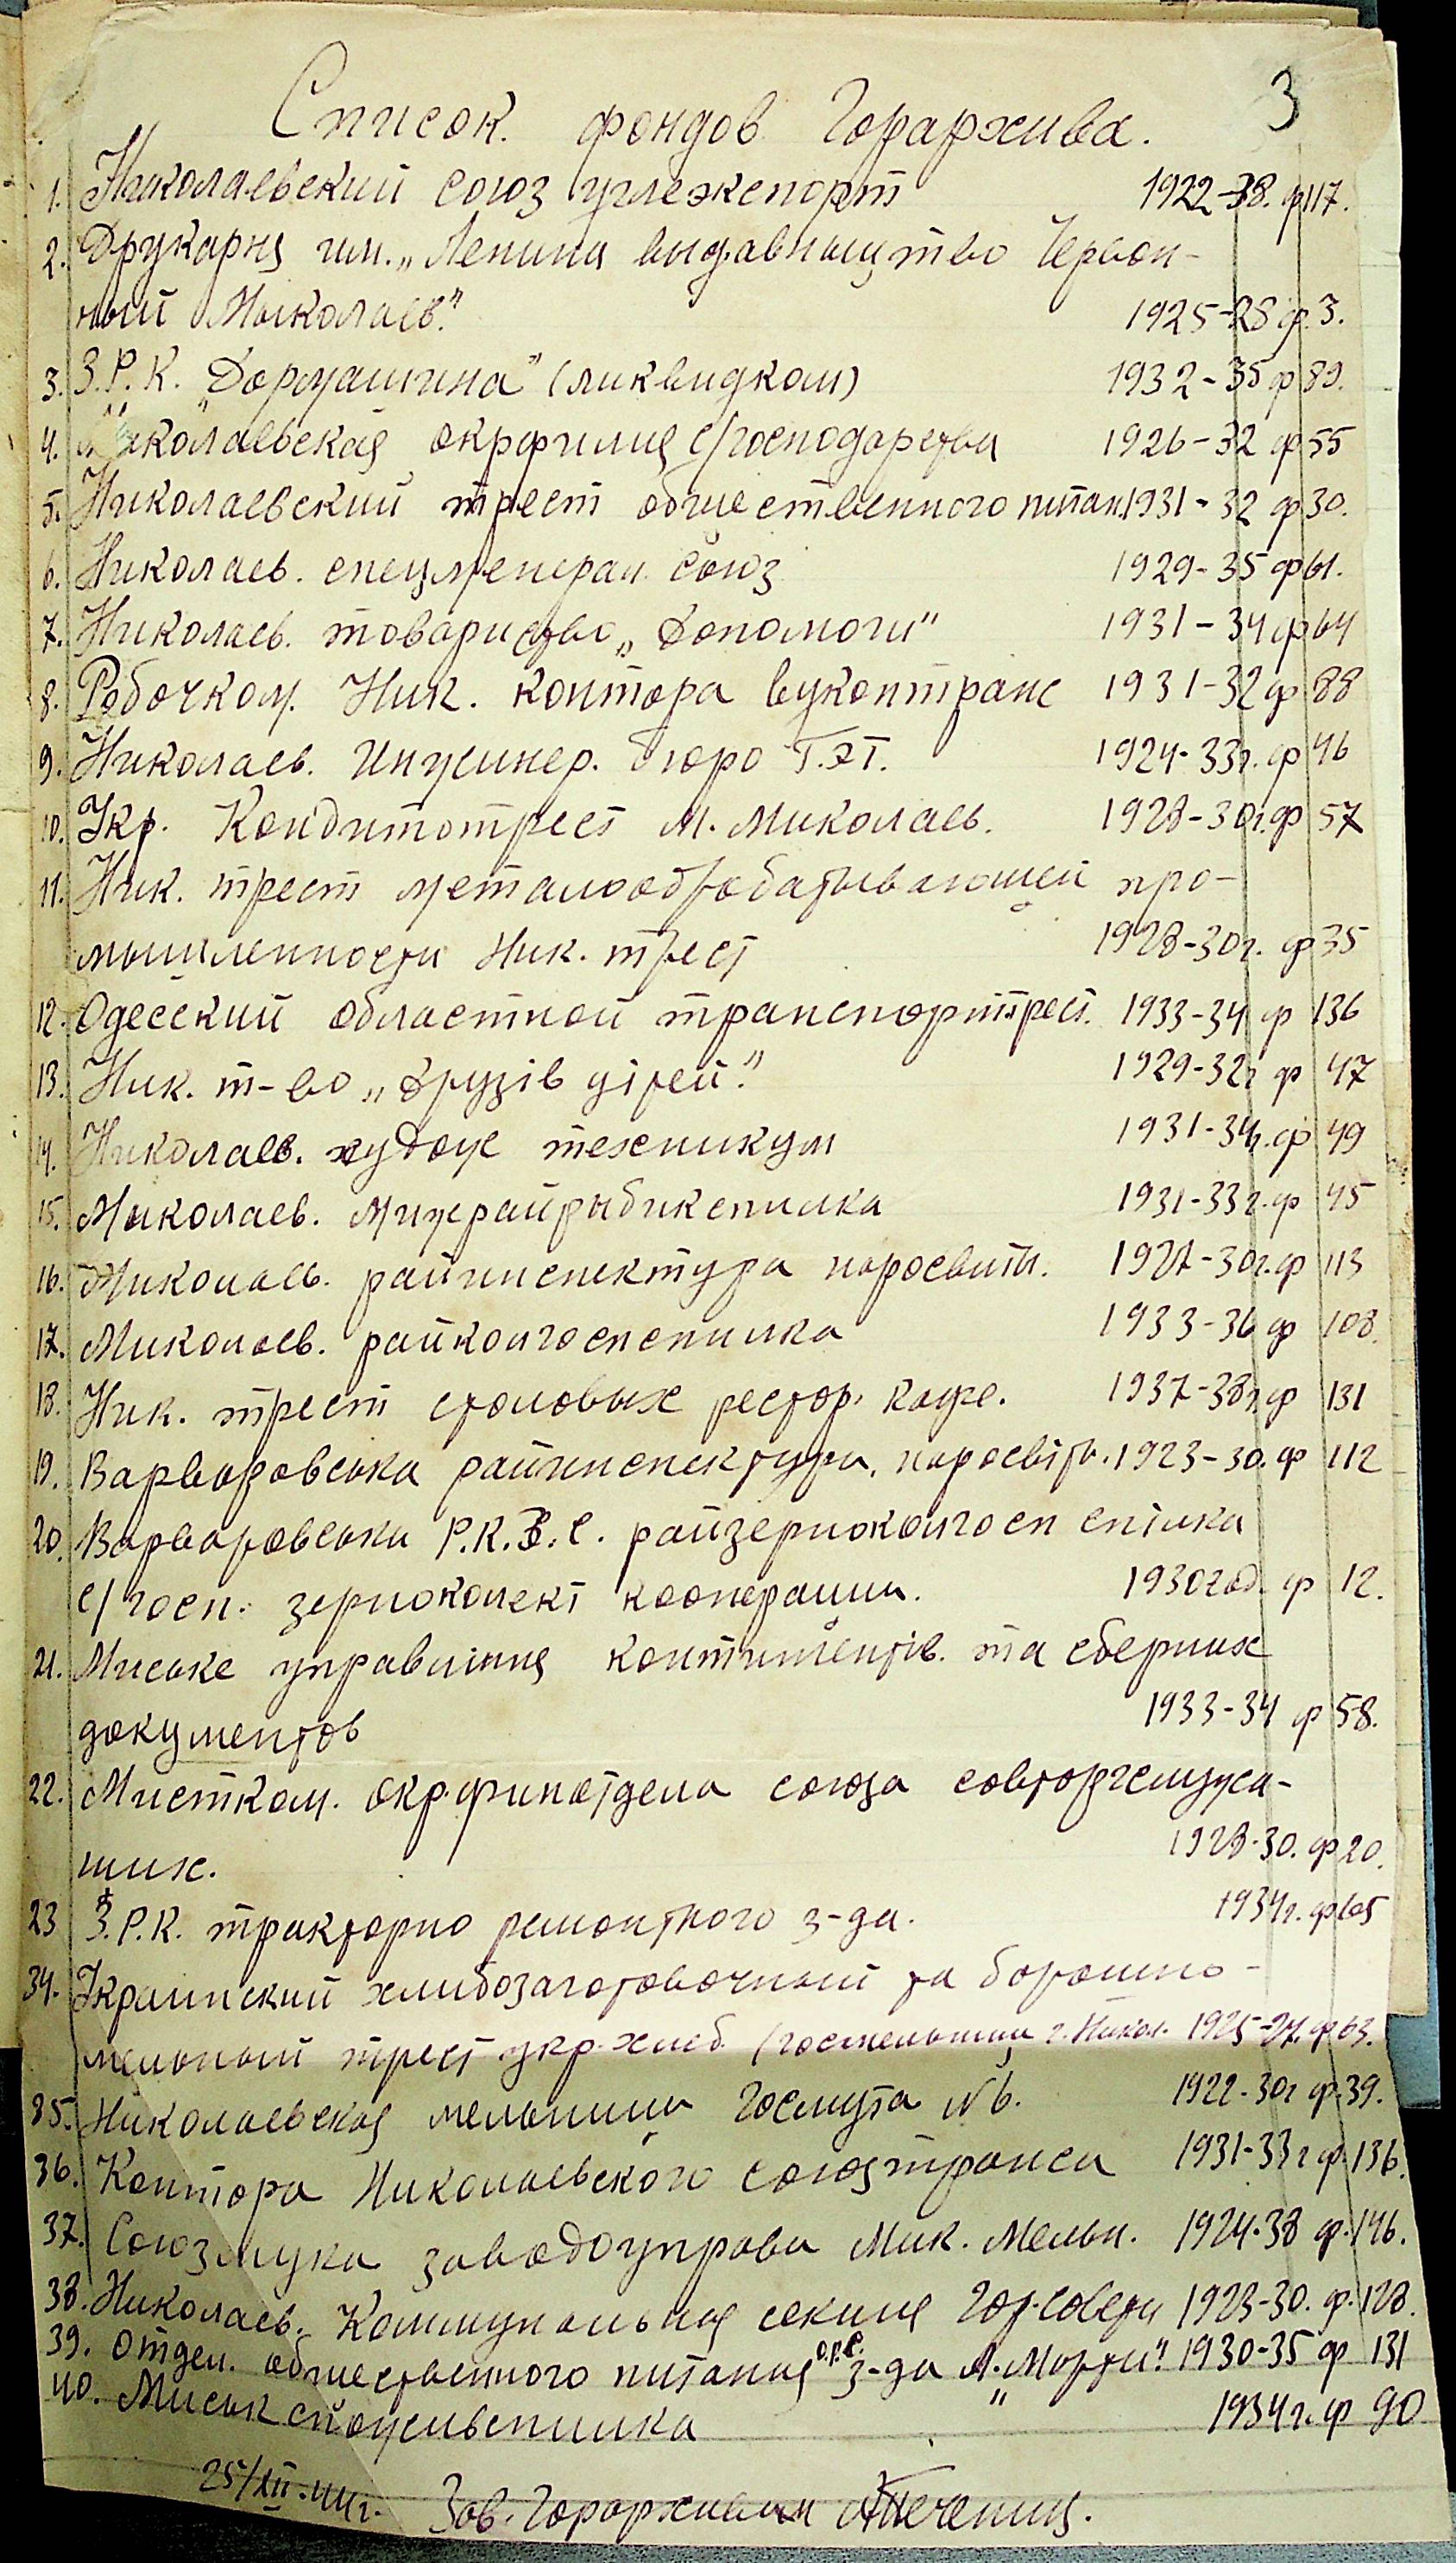 3
Список фондов Горархива.
1. Николаевский союз углеэкспорт 1922-38. ф 117.
2. Друкарня им. „Ленина выдавныцтво Червон-
ный Мыколаев." 1925-28 ф. 3.
3. З.Р.К. „Дормашина" (ликвидком) 1932-35 ф 89.
4. Николаевская окрфилия с/господарства 1926-32 ф 55
5. Николаевский трест общественного питан. 1931-32 ф 30.
6. Николаев. союз 1929-35 ф 61.
7. Николаев. товариство „Допомоги" 1931-34 ф 64
8. Робочком. Ник. контора вуконтранс 1931-32 ф 88
9. Николаев. Инжинер. бюро Г.Э.Т. 1924-33г. ф 46
10. Укр. Кондитотрест М. Миколаев. 1928-30г. ф 57
11. Ник. трест металообробатывающей про-
мышленности Ник. трест 1928-30г. ф 35
12. Одесский областной транспортрест. 1933-34 ф 136
13. Ник. т-во „Друзів дітей." 1929-32г ф 47
14. Николаев. худож техникум 1931-34г. ф 49
15. Мыколаев. Мижрайрыбикспилка 1931-33г. ф 45
16. Миколаев. райинспектура наросвиты. 1927-30г. ф 113
17. Миколаев. райколгоспспилка 1933-36 ф 108.
18. Ник. трест столовых рестор. кафе. 1937-38г. ф 131
19. Варваровська райинспектура, наросвіти. 1923-30. ф 112
20. Варваровська Р.К.З.С. райзерноколгосп спілка
с/госп. зерноколект кооперации. 1930 год. ф 12.
21. Миське управлиння контингентів. та сберних
документов 1933-34 ф 58.
22. Мистком. окр.финотдела союза совторгслужа-
щих. 1928-30. ф 20.
23 З.Р.К. тракторно ремонтного з-да. 1934г. ф 105
34. Украинский хлибозаготовочный та борошно-
мельный трест укр.хлеб (госмельница г. Никол. 1925-27. ф 63.
35. Николаевская мельница Госмута №6. 1922-30г ф. 39.
36. Контора Николаевского союзтранса 1931-33г ф. 136.
37. Союзмука заводоуправа Мик. Мельн. 1924-38 ф. 146.
38. Николаев. Коммунальная секция Гор.совета 1923-30. ф. 128.
39. Отдел. общественного питания о.р.с. з-да А. „Марти". 1930-35 ф 131
40. Миськ споживспилка 1934г. ф 90
25/XII-44г. Зав. Горархивам